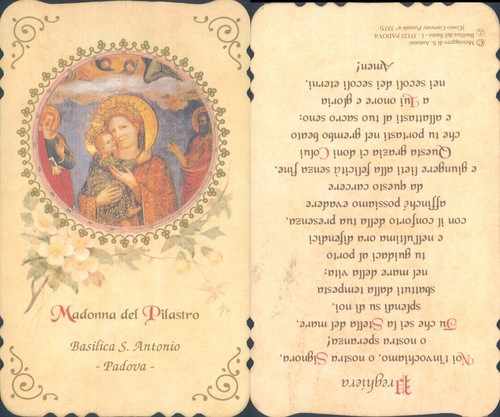 Madonna del Pilastro
Basilica S. Antonio
- Padova -
Preghiera
Noi t'invochiamo, o nostra Signora,
o nostra speranza!
Tu che sei la Stella del mare,
splendi su di noi,
sbattuti dalla tempesta
nel mare della vita:
tu guidaci al porto
e nell'ultima ora difendici
con il conforto della tua presenza,
affinché possiamo evadere
da questo carcere
e giungere lieti alla felicità senza fine.
Questa grazia ci doni Colui
che tu portasti nel grembo beato
e allattasti al tuo sacro seno;
a Lui onore e gloria
nei secoli dei secoli eterni,
Amen!
© Messaggero di S. Antonio
Basilica del Santo - I - 35123 PADOVA
(Conto Corrente Postale n° 3353)